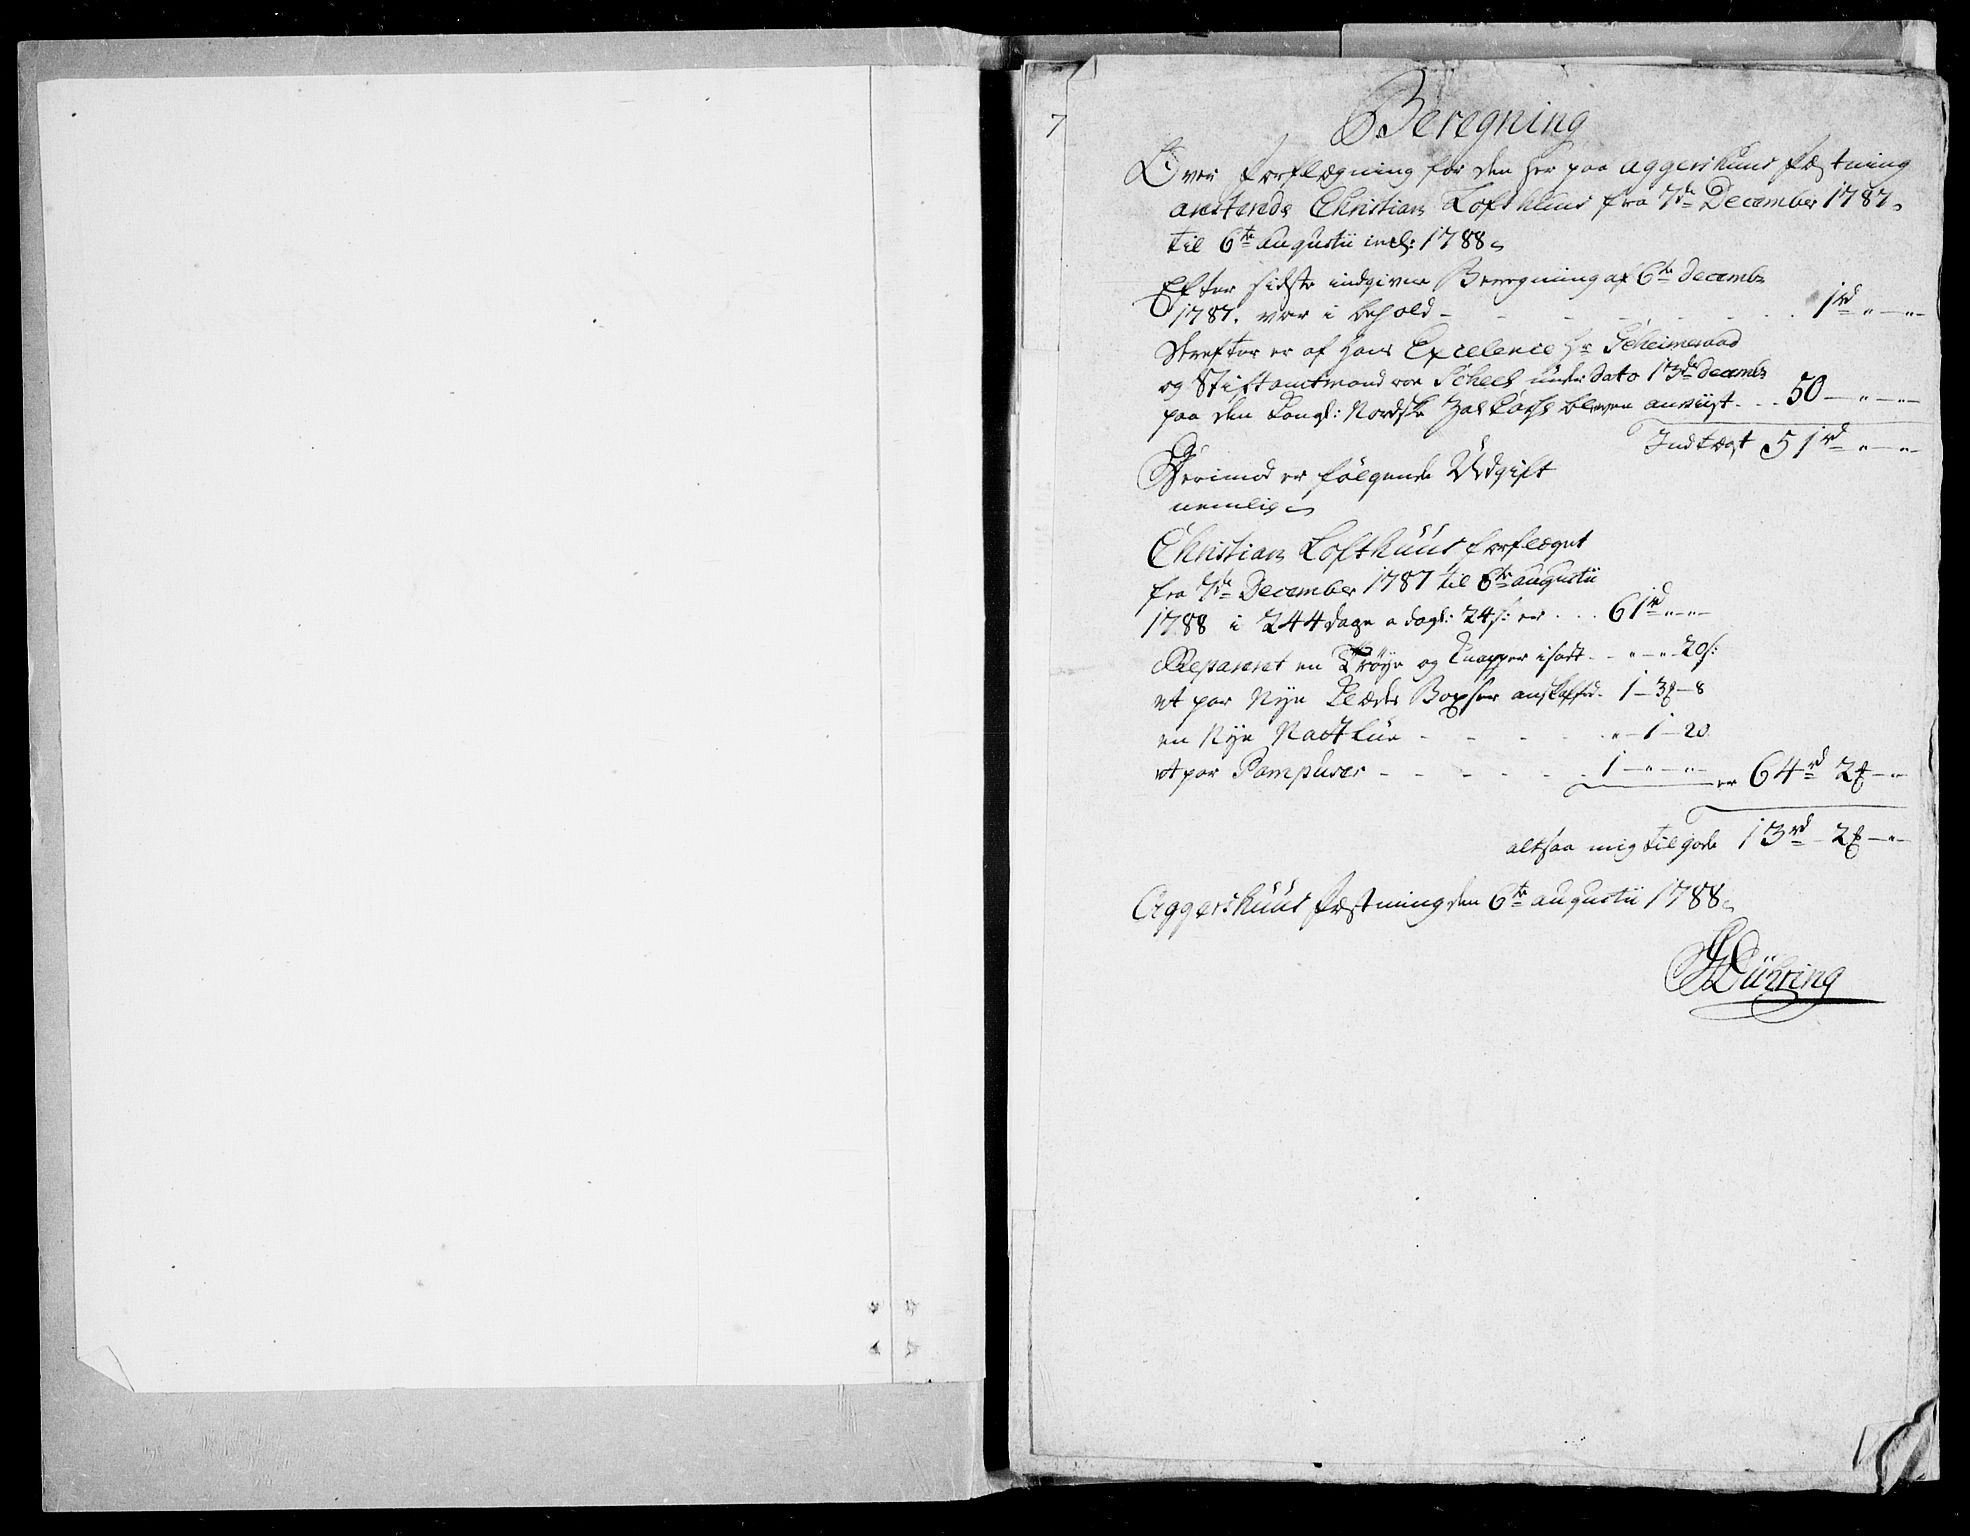 7
Beregning
Over Forflægning for den her paa Aggershuus Fæstning
aresterede Christian Lofthuus fra 7de December 1787
til 6te Augustii incl: 1788
Efter sidste indgivne Beregning af 6te Decembr
1787. var i behold - - - - - 1rd „ — „
Derefter er af Hans Excelence Hr Geheimeraad
og Stiftamtmand von Scheel under Dato 13de Decembr
paa den Kongl: Nordske Zal Casse bleven anviist . . . 50 — „ — „
Indtægt 51rd „ — „
Derimod er følgende Udgift
nemlig
Christian Lofthuus forflæget
fra 7de December 1787 til 6te Augustii
1788 i 244 dage a dagl: 24 s: er . . . 61rd „ — „
Repareret en Trøye og Knapper isatt - - „ - „ - 20 s:
et par Nye Klædes Boxser anskaffed - 1 - 3 - 8
en Nye Natt Lue - - - - „ - 1 - 20
et par Pampuser - - - - - 1 - „ - „ er 64rd 2 — „
altsaa mig tilgode 13rd - 2 — „
Aggershuus Fæstning den 6te Augustii 1788
Döhring